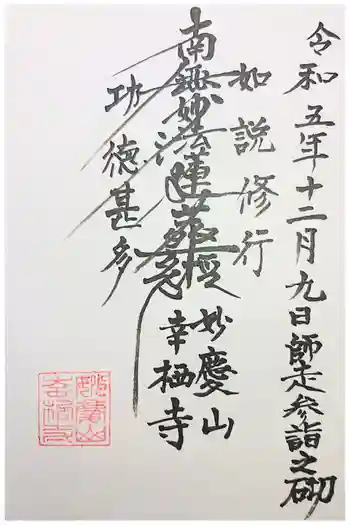 令和五年十二月九日師走参詣之砌
如説修行
南無妙法蓮華経
功徳甚多
妙慶山
幸栖寺